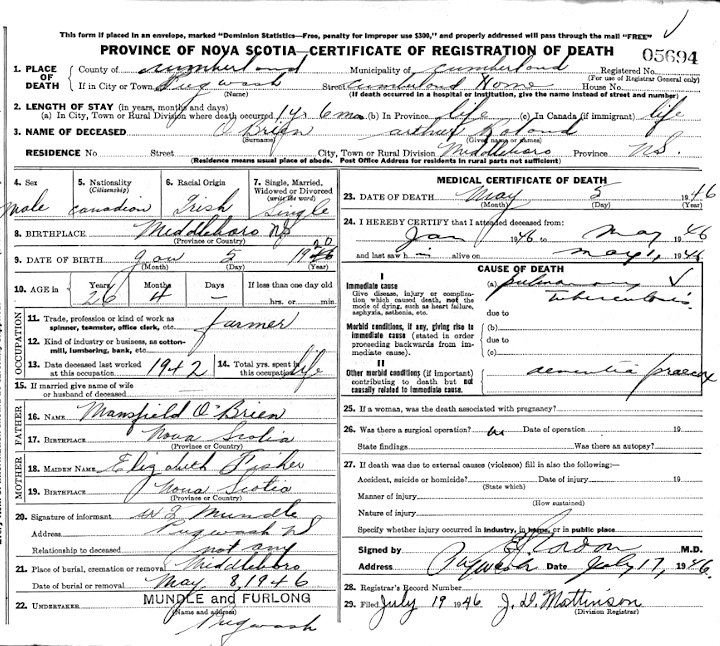 This form if placed in an envelope, marked "Dominion Statistics—Free, penalty for improper use $300," and properly addressed will pass through the mail "FREE"
PROVINCE OF NOVA SCOTIA—CERTIFICATE OF REGISTRATION OF DEATH
05694
1. PLACE OF DEATH County of Cumberland Municipality of Cumberland Registered No.
(For use of Registrar General only)
If in City or Town Pugwash Street Cumberland Home House No.
(Name) (If death occurred in a hospital or institution, give the name instead of street and number)
2. LENGTH OF STAY (in years, months and days)
(a) In City, Town or Rural Division where death occurred 1 yr 6 mos (b) In Province life (c) In Canada (if immigrant) life
3. NAME OF DECEASED O'Brien Arthur Roland
(Surname) (Given name or names)
RESIDENCE No. Street City, Town or Rural Division Middleboro Province N.S.
(Residence means usual place of abode. Post Office Address for residents in rural parts not sufficient)
4. Sex 5. Nationality (Citizenship) 6. Racial Origin 7. Single, Married, Widowed or Divorced (write the word)
Male Canadian Irish Single
8. BIRTHPLACE Middleboro NS
(Province or Country)
9. DATE OF BIRTH Jan 5 1920
(Month) (Day) (Year)
10. AGE in Years Months Days If less than one day old
26 4 – hrs. or min.
OCCUPATION
11. Trade, profession or kind of work as spinner, teamster, office clerk, etc. farmer
12. Kind of industry or business, as cotton-mill, lumbering, bank, etc.
13. Date deceased last worked at this occupation 1942 14. Total yrs. spent in this occupation life
15. If married give name of wife or husband of deceased —
FATHER
16. NAME Mansfield O'Brien
17. BIRTHPLACE Nova Scotia
(Province or Country)
MOTHER
18. MAIDEN NAME Elizabeth Fisher
19. BIRTHPLACE Nova Scotia
(Province or Country)
20. Signature of informant Mundle
Address Pugwash NS
Relationship to deceased not any
21. Place of burial, cremation or removal Middleboro
Date of burial or removal May 8, 1946
22. UNDERTAKER MUNDLE and FURLONG
(Name and address)
Pugwash
MEDICAL CERTIFICATE OF DEATH
23. DATE OF DEATH May 5 1946
(Month) (Day) (Year)
24. I HEREBY CERTIFY that I attended deceased from
Jan 1946 to May 1946
and last saw h im alive on May 1, 1946
CAUSE OF DEATH
I
Immediate cause (a) pulmonary tuberculosis
Give disease, injury or complication which caused death, not the mode of dying, such as heart failure, asphyxia, asthenia, etc. due to
Morbid conditions, if any, giving rise to immediate cause (stated in order proceeding backwards from immediate cause). (b)
due to
(c)
II
Other morbid conditions (if important) contributing to death but not causally related to immediate cause. dementia praecox
25. If a woman, was the death associated with pregnancy?
26. Was there a surgical operation? no Date of operation 19
State findings Was there an autopsy?
27. If death was due to external causes (violence) fill in also the following:—
Accident, suicide or homicide? Date of injury 19
(State which)
Manner of injury
(How sustained)
Nature of injury
Specify whether injury occurred in industry, in home, or in public place
Signed by Cordon M.D.
Address Pugwash Date July 17, 1946.
28. Registrar's Record Number
29. Filed July 19 1946 J. D. Mattinson
(Division Registrar)